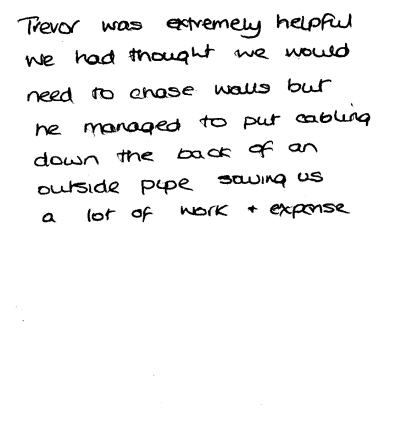 Trevor was extremely helpful
we had thought we would
need to chase walls but
he managed to put cabling
down the back of an
outside pipe saving us
a lot of work + expense